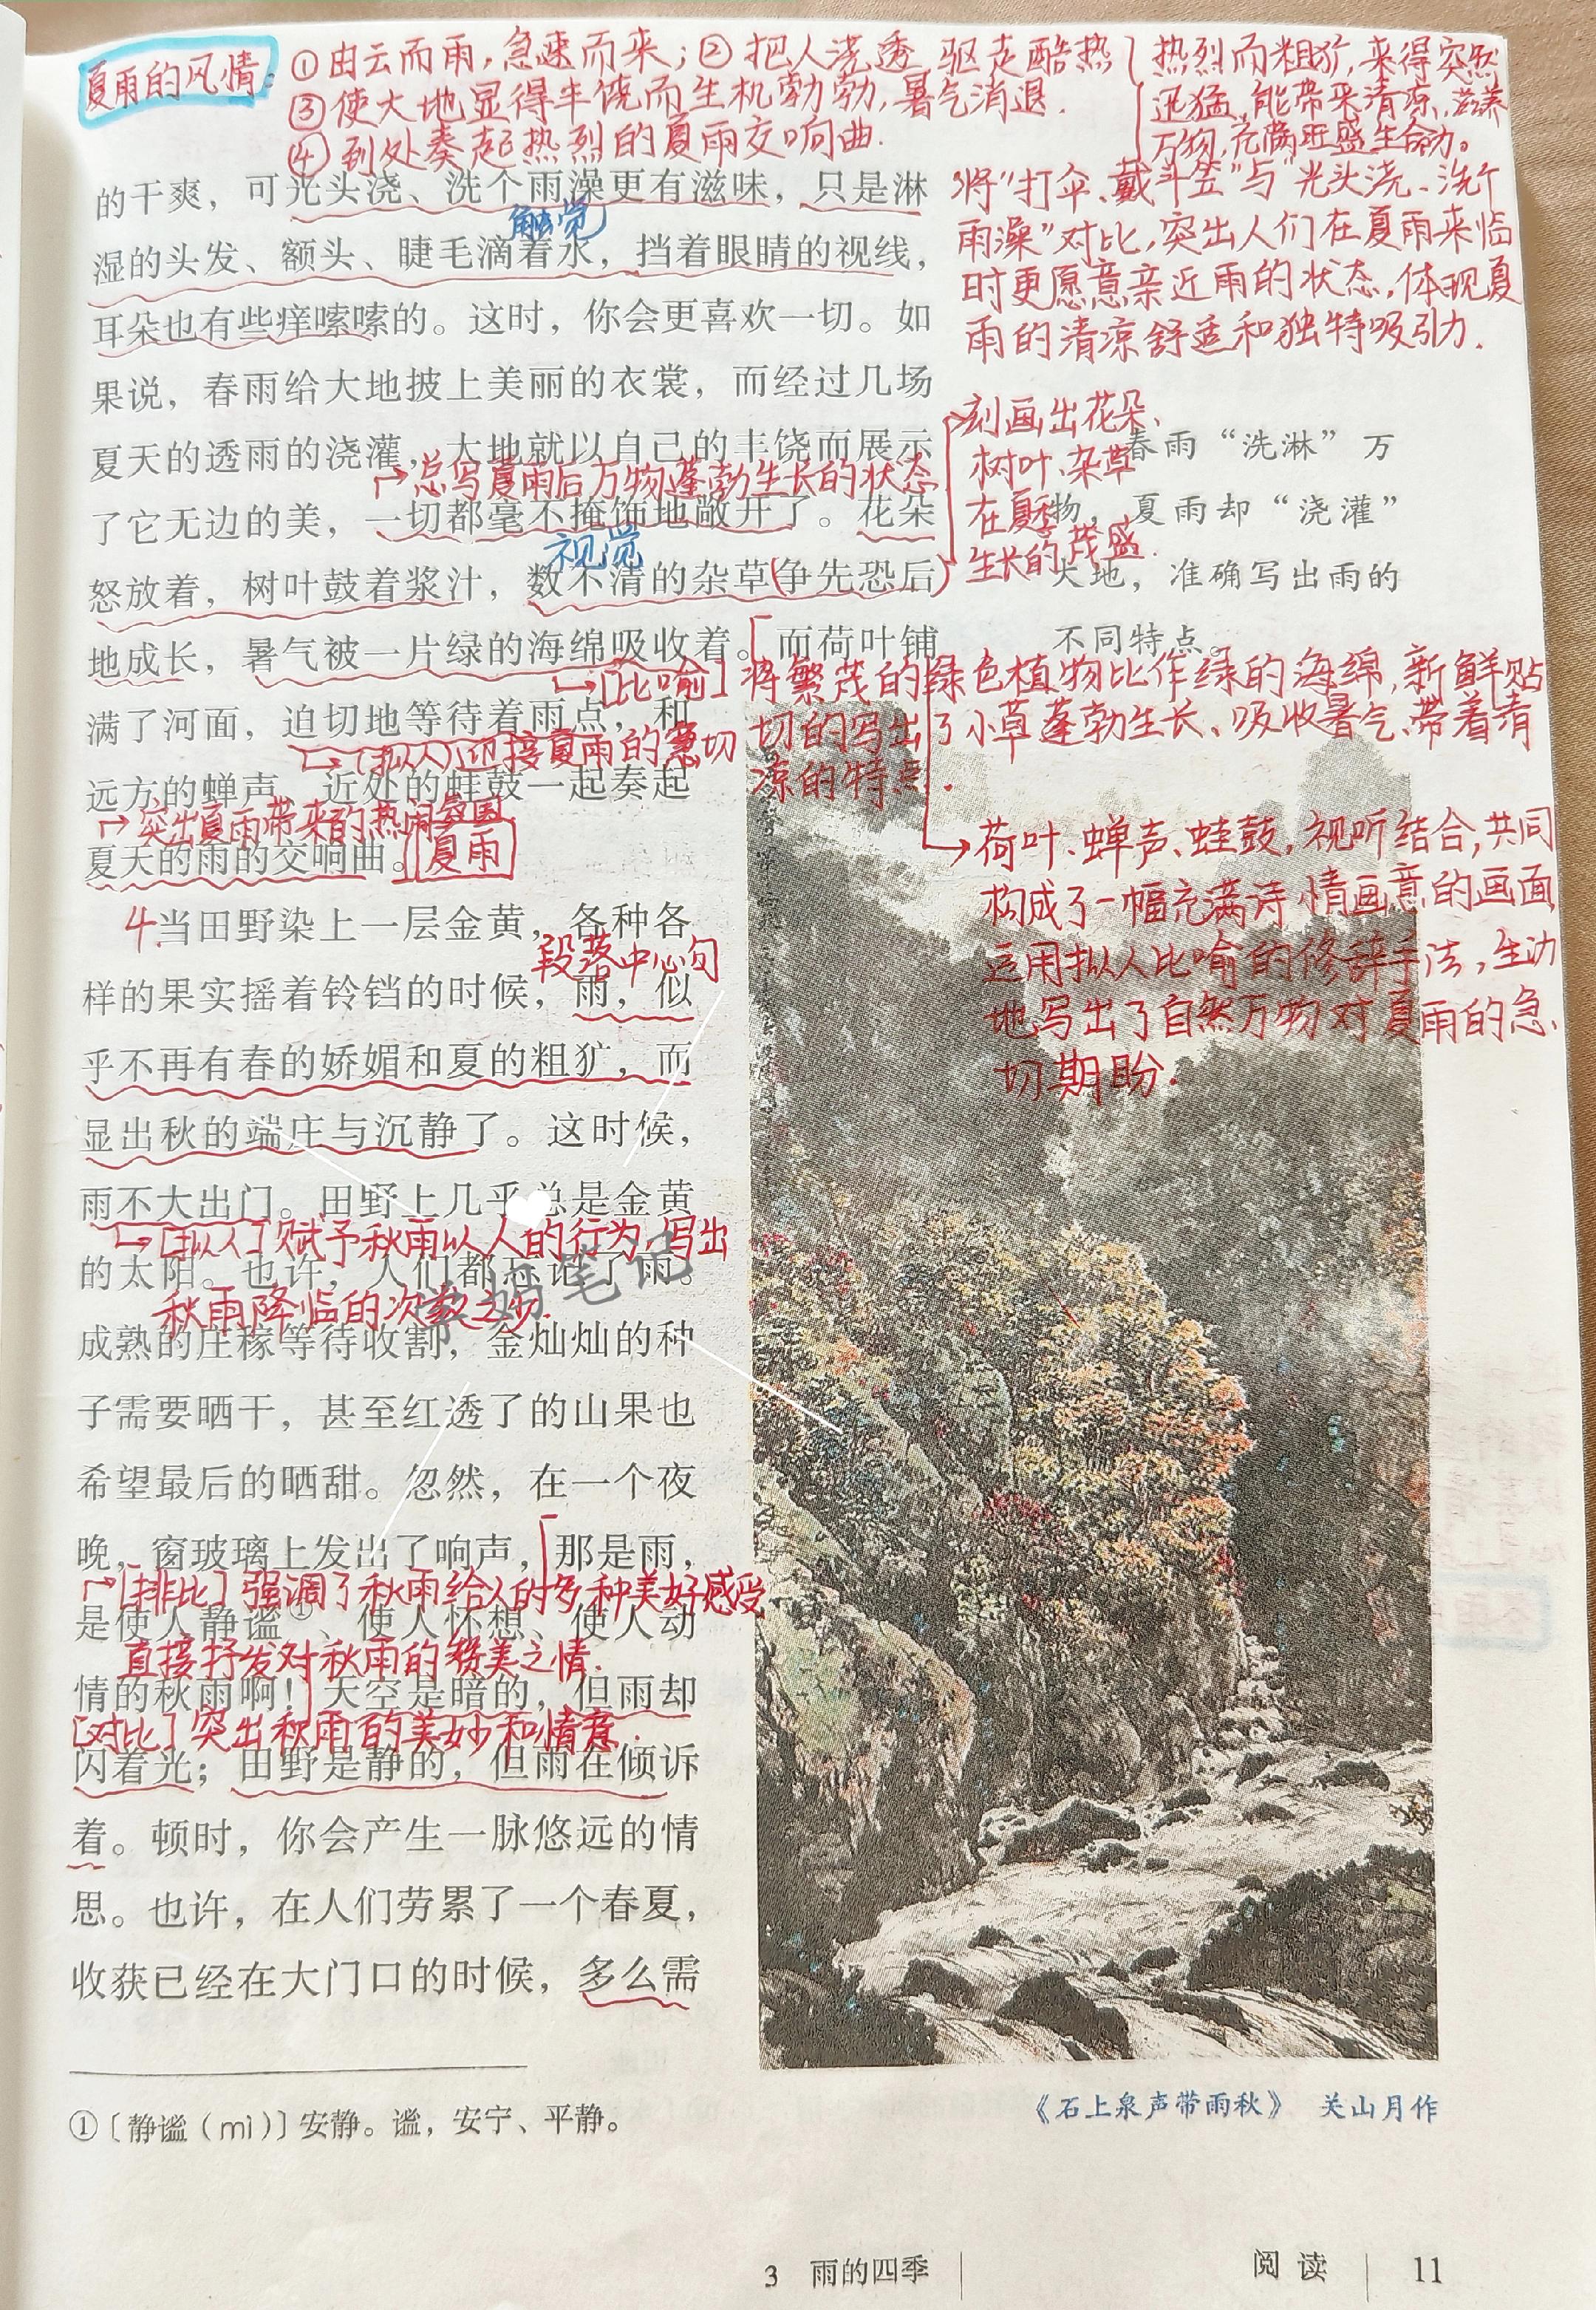 夏雨的风情：
①由云而雨，急速而来；②把人浇透 驱走酷热
③使大地显得丰饶而生机勃勃，暑气消退．
④到处奏起热烈的夏雨交响曲．
热烈而粗犷，来得突然
迅猛，能带来清凉，滋养
万物，充满旺盛生命力。
将“打伞、戴斗笠”与“光头浇、洗个
雨澡”对比，突出人们在夏雨来临
时更愿意亲近雨的状态，体现夏
雨的清凉舒适和独特吸引力．
的干爽，可光头浇、洗个雨澡更有滋味，只是淋
触觉
湿的头发、额头、睫毛滴着水，挡着眼睛的视线，
耳朵也有些痒嗦嗦的。这时，你会更喜欢一切。如
果说，春雨给大地披上美丽的衣裳，而经过几场
夏天的透雨的浇灌，大地就以自己的丰饶而展示
总写夏雨后万物蓬勃生长的状态
了它无边的美，一切都毫不掩饰地敞开了。花朵
视觉
怒放着，树叶鼓着浆汁，数不清的杂草争先恐后
地成长，暑气被一片绿的海绵吸收着。而荷叶铺
刻画出花朵、
树叶、杂草
在夏季
生长的茂盛．
春雨“洗淋”万
物，夏雨却“浇灌”
大地，准确写出雨的
不同特点。
[比喻] 将繁茂的绿色植物比作绿的海绵，新鲜贴
切的写出了小草蓬勃生长、吸收暑气、带着清
凉的特点．
满了河面，迫切地等待着雨点，和
(拟人)迎接夏雨的急切
远方的蝉声、近处的蛙鼓一起奏起
突出夏雨带来的热闹氛围
夏天的雨的交响曲。
夏雨
荷叶、蝉声、蛙鼓，视听结合，共同
构成了一幅充满诗情画意的画面
运用拟人比喻的修辞手法，生动
地写出了自然万物对夏雨的急
切期盼．
4.当田野染上一层金黄，各种各
段落中心句
样的果实摇着铃铛的时候，雨，似
乎不再有春的娇媚和夏的粗犷，而
显出秋的端庄与沉静了。这时候，
雨不大出门。田野上几乎总是金黄
[拟人] 赋予秋雨以人的行为，写出
的太阳。也许，人们都忘记了雨。
秋雨降临的次数之少．
学妈笔记
成熟的庄稼等待收割，金灿灿的种
子需要晒干，甚至红透了的山果也
希望最后的晒甜。忽然，在一个夜
晚，窗玻璃上发出了响声，那是雨，
[排比] 强调了秋雨给人的多种美好感受
是使人静谧①、使人怀想、使人动
直接抒发对秋雨的赞美之情．
情的秋雨啊！天空是暗的，但雨却
[对比] 突出秋雨的美妙和情意．
闪着光；田野是静的，但雨在倾诉
着。顿时，你会产生一脉悠远的情
思。也许，在人们劳累了一个春夏，
收获已经在大门口的时候，多么需
①〔静谧（mì）〕安静。谧，安宁、平静。
《石上泉声带雨秋》 关山月作
3 雨的四季
阅读 11